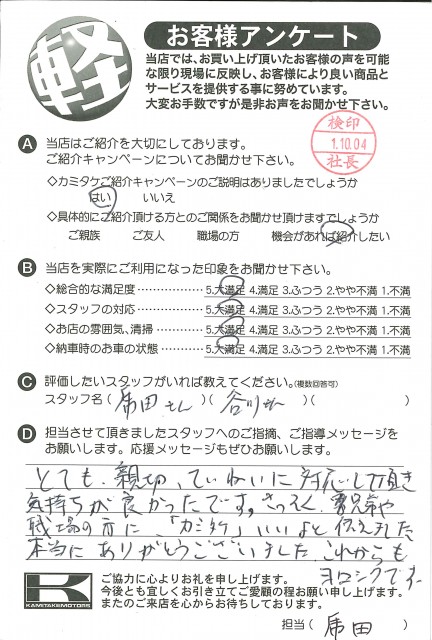 軽
お客様アンケート
当店では、お買い上げ頂いたお客様の声を可能
な限り現場に反映し、お客様により良い商品と
サービスを提供する事に努めています。
大変お手数ですが是非お声をお聞かせ下さい。
検印
1.10.04
社長
A 当店はご紹介を大切にしております。
ご紹介キャンペーンについてお聞かせ下さい。
◇カミタケご紹介キャンペーンのご説明はありましたでしょうか
はい いいえ
◇具体的にご紹介頂ける方とのご関係をお聞かせ頂けますでしょうか
ご親族 ご友人 職場の方 機会があれば紹介したい
B 当店を実際にご利用になった印象をお聞かせ下さい。
◇総合的な満足度 5.大満足 4.満足 3.ふつう 2.やや不満 1.不満
◇スタッフの対応 5.大満足 4.満足 3.ふつう 2.やや不満 1.不満
◇お店の雰囲気、清掃 5.大満足 4.満足 3.ふつう 2.やや不満 1.不満
◇納車時のお車の状態 5.大満足 4.満足 3.ふつう 2.やや不満 1.不満
C 評価したいスタッフがいれば教えてください。(複数回答可)
スタッフ名( 席田さん )( 谷川さん )( )
D 担当させて頂きましたスタッフへのご指摘、ご指導メッセージを
お願いします。応援メッセージもぜひお願いします。
とても、親切、ていねいに対応して頂き
気持ちが良かったです。さっそく、兄弟や
職場の方に、「カミタケ」いいよと伝えました
本当にありがとうございました これからも
ヨロシクです
K
KAMITAKE MOTORS
ご協力に心よりお礼を申し上げます。
今後とも宜しくお引き立てご愛顧の程お願い申し上げます。
またのご来店を心からお待ちしております。
担当( 席田 )